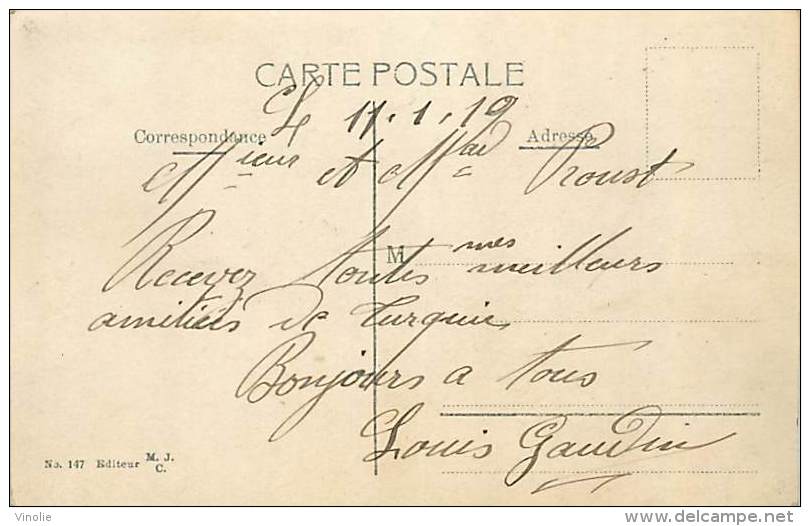 CARTE POSTALE
Le 11.1.19
Correspondance
Adresse
Mieur et Mad Proust
M
Recevez toutes mes meilleurs
amitiés de Turquie
Bonjours a tous
Louis Gaudin
No. 147 Editeur M. J. C.
Vinolie
delcampe.net